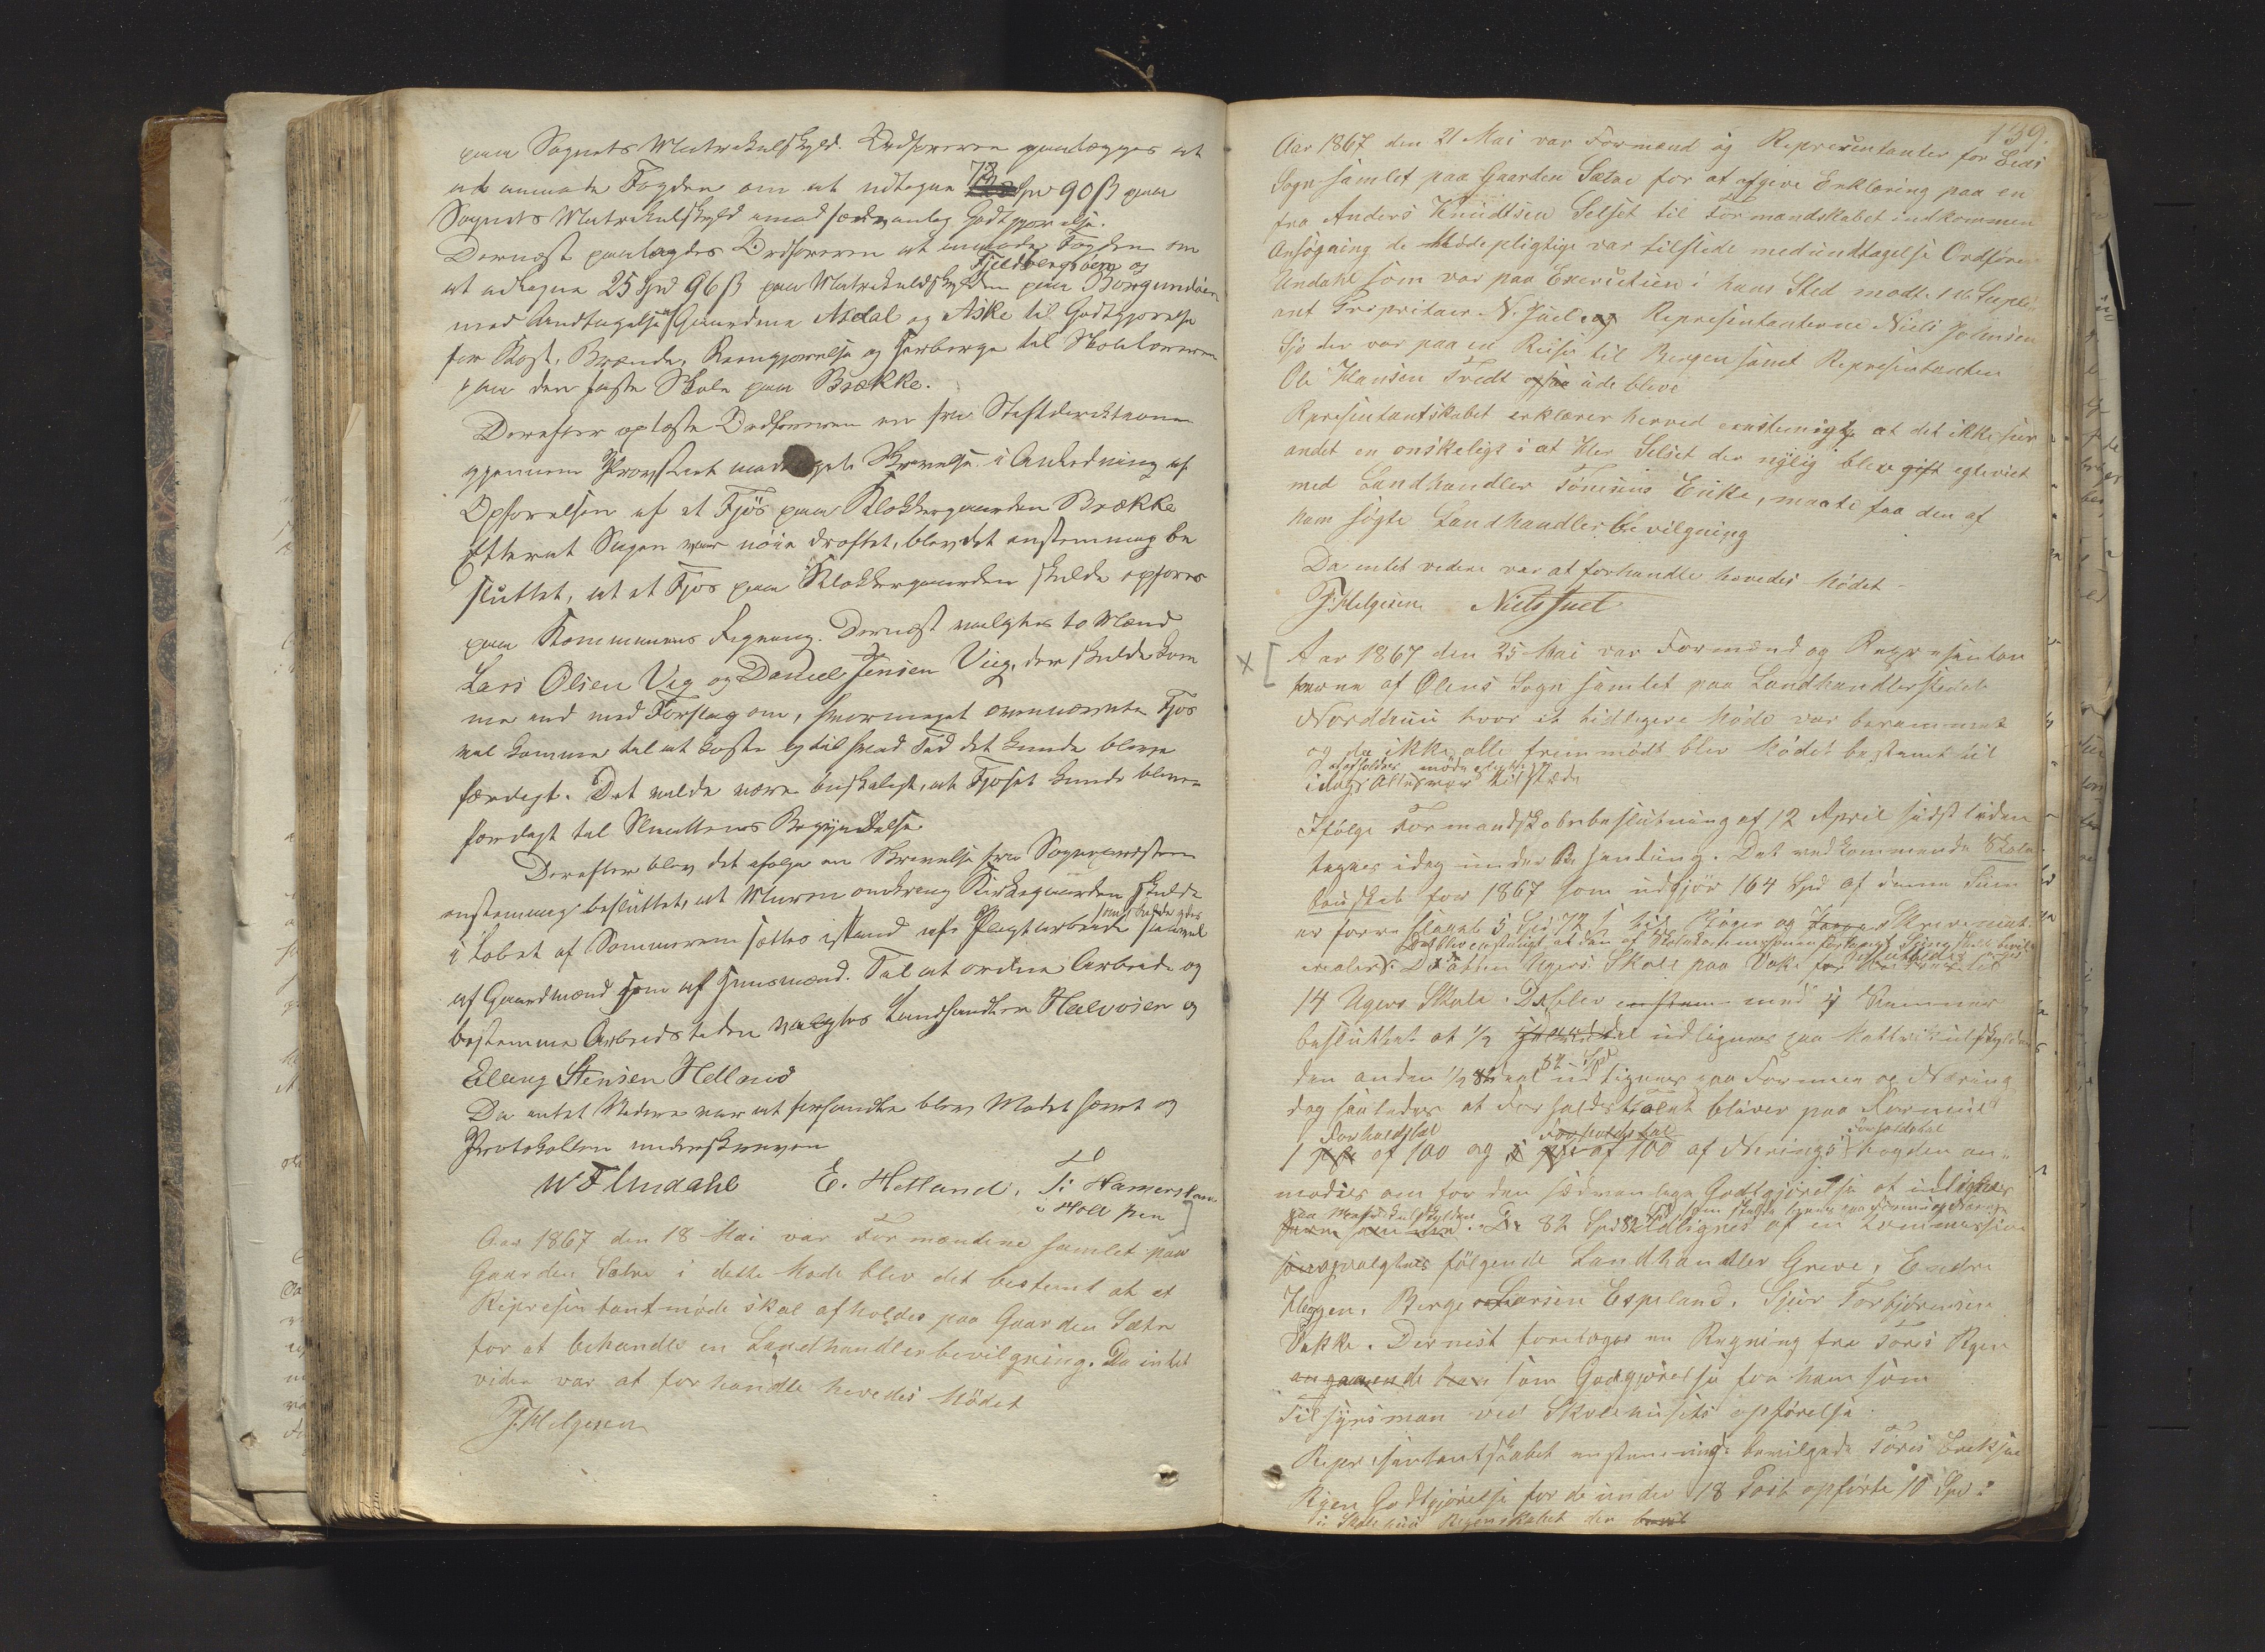 paa Sognets Matrikulskyld. Ordføreren paalægges at
at anmode Fogden om at udtegne 72 Spd 90 ß paa
Sognets Matrikulskyld imod sædvanlig Godtgjørelse.
Dernæst paalagdes Ordføreren at anmode Fogden om
Fjeldbergsøen og
at udtegne 25 Spd 96 ß paa Matrikulskylden paa Borgundøen
med Undtagelse af Gaardene Asdal og Aske til Godtgjørelse
for Kost, Brænde, Reengjørelse og Herberge til Skolelæreren
paa den faste Skole paa Brække.
Derefter oplæste Ordføreren en fra Stiftdirektionen
gjennem Provsten modtaget Skrivelse i Anledning af
Opførelsen af et Fjøs paa Klokkergaarden Brække
Efterat Sagen var nøie drøftet, blev det enstemmig be
sluttet, at et Fjøs paa Klokkergaarden skulde opføres
paa Kommunens Regning. Dernæst valgtes to Mænd
Lars Olsen Vig og Daniel Jensen Vieg, der skulde kom
me ind med Forslag om, hvormeget ovennævnte Fjøs
vil komme til at koste og til hvad Tid det kunde blive
færdigt. Det vilde være ønskeligt, at Fjøset kunde blive
færdigt til Slaattens Begyndelse.
Derefter blev det ifølge en Skrivelse fra Sognepræsten
enstemmig besluttet, at Muren omkring Kirkegaarden skulde
i Løbet af Sommeren sættes istand ved Pligtarbeide saavel
af Gaardmænd som af Huusmænd. Til at ordne Arbeide og
bestemme Arbeidstiden valgtes Landhandler Halvorsen og
Elling Stensen Helland
Da intet Videre var at forhandle blev Mødet hævet og
Protokollen underskreven
W F Undahl E. Hetland, T. Hamersland
i Holt pen
Aar 1867 den 18 Mai var Formændene samlet paa
Gaarden Sætre i dette Møde blev det bestemt at et
Representantmøde skal afholdes paa Gaarden Sætre
for at behandle en Landhandlerbevilgning. Da intet
videre var at forhandle hevedes Mødet
J. Helgesen
139.
Aar 1867 den 21 Mai var Formænd og Representanter for Eids
Sogn samlet paa Gaarden Sætre for at afgive Erklæring paa en
fra Anders Knudtsen Selset til Formandskabet indkommen
Ansøgning de Mødepligtige var tilstede med undtagelse Ordfører
Undahl som var paa Execution i hans Sted mødte 1ste Suple
ant Propritær N. Juel og Representanterne Niels Johnsen
Sjø der var paa en Reise til Bergen samt Representanten
Ole Hansen Tvedt ogsaa udebleve
Representantskabet erklærer herved eenstemigt at det ikke seer
andet en ønskeligt i at Her Selset der nylig blev gift egteviet
med Landhandler Tønnins Enke, maate faa den af
ham søgte Landhandlerbevilgning
Da intet videre var at forhandle hævedes Mødet
J. Helgesen Niels Juel
Aar 1867 den 25 Mai var Formænd og Represantan
terne af Ølens Sogn samlet paa Landhandlerstedet
Nordhuus hvor et tidligere Møde var berammet
og da ikke alle fremmødte blev Mødet bestemt til
at afholdes
idag Alle var tilstede
Ifølge Formandskabsbeslutning af 12 April sidst leden
tages idag under Behandling. Det vedkommende Skole
budskab for 1867 som udgjør 164 Spd af denne Sum
er foreslaaet 5 Spd 72 ß til Bøger og Skrivemat
erialer.
14 Ugers Skole. Det blev med 4 Stemmer
besluttet at 1/2 udlignes paa Matrikulskylden
den anden 1/2 82 Spd udlignes paa Formue og Næring
dog saaledes at Forholdstallet bliver paa Formue
Forholdstal Forholdstal Forholdstal
1 af 100 og af 100 af Nerings Fogden an-
modes om for den sædvanlige Godtgjørelse at indligne
paa Matrikulskylden
De 82 Spd udlignes af en Commission
valgtes følgende Landhandler Greve, Endre
Heggen, Berge Larsen Espeland, Sjur Torbjørnsen
Vakke. Dernest foretoges en Regning fra Tores Rgen
som Godtgjørelse for ham som
Tilsynsman ved Skolehusets opførelse.
Representantskabet enstemmig bevilgede Tores Eriksen
Rgen Godtgjørelse for de under 18 Post opførte 10 Spd
i Skolehus Regnskabet den